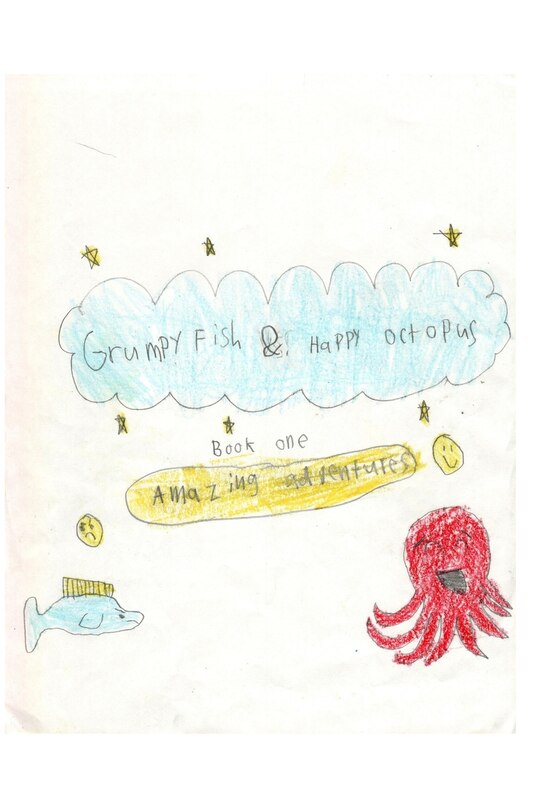 Grumpy Fish & Happy Octopus
Book one
Amazing adventures